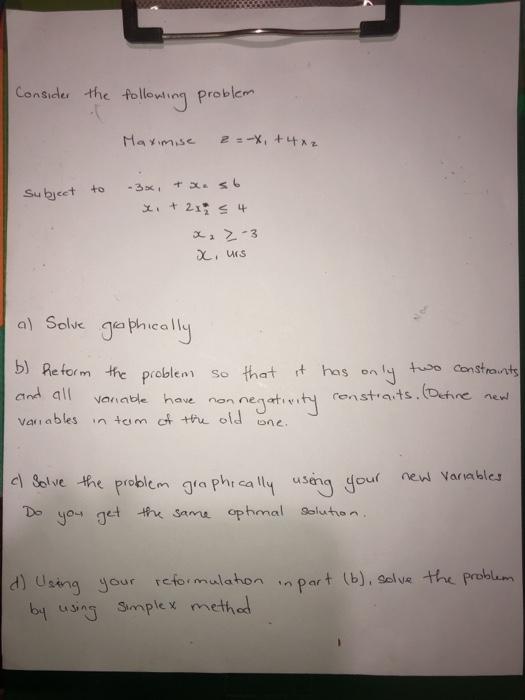 Consider the following problem
Maximise z = -x₁ + 4x₂
subject to -3x₁ + x₂ ≤ 6
x₁ + 2x₂ ≤ 4
x₂ ≥ -3
x₁ urs
a) Solve graphically
b) Reform the problem so that it has only two constraints
and all variable have nonnegativity constraits. (Define new
variables in term of the old one.
c) Solve the problem graphically using your new variables
Do you get the same optimal solution.
d) Using your reformulation in part (b), solve the problem
by using simplex method